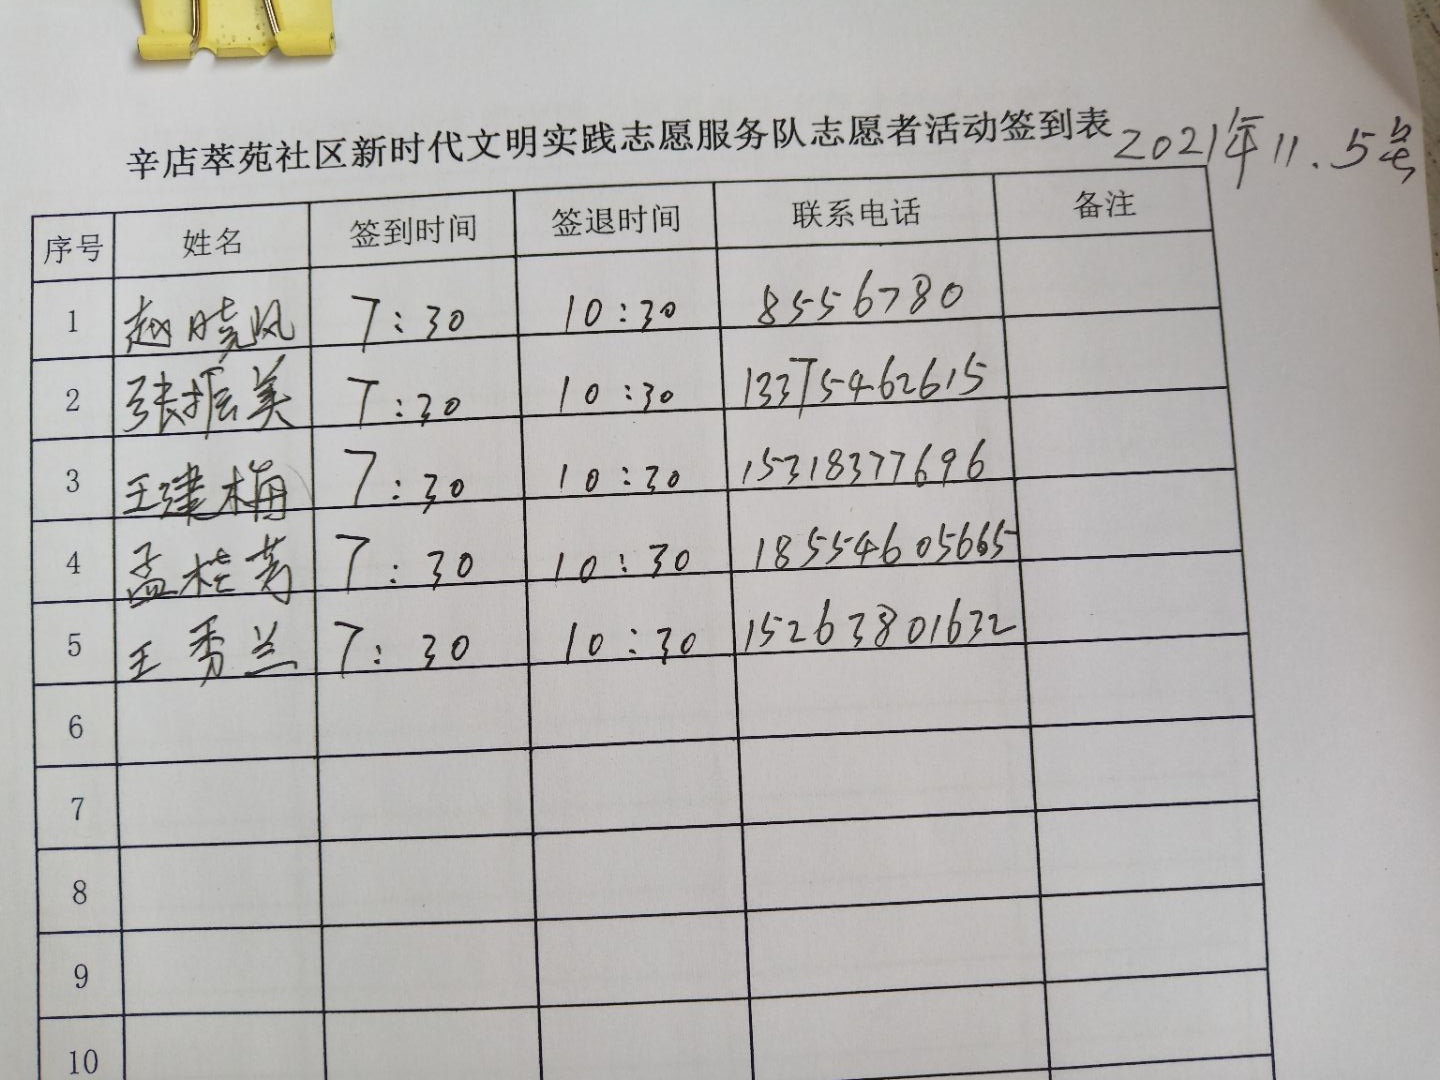 辛店萃苑社区新时代文明实践志愿服务队志愿者活动签到表 2021年11.5号
序号 姓名 签到时间 签退时间 联系电话 备注
1 赵晓风 7:30 10:30 8556780
2 张振美 7:30 10:30 13375462615
3 王建梅 7:30 10:30 15318377696
4 孟桂芳 7:30 10:30 18554605665
5 王秀兰 7:30 10:30 15263801632
6
7
8
9
10